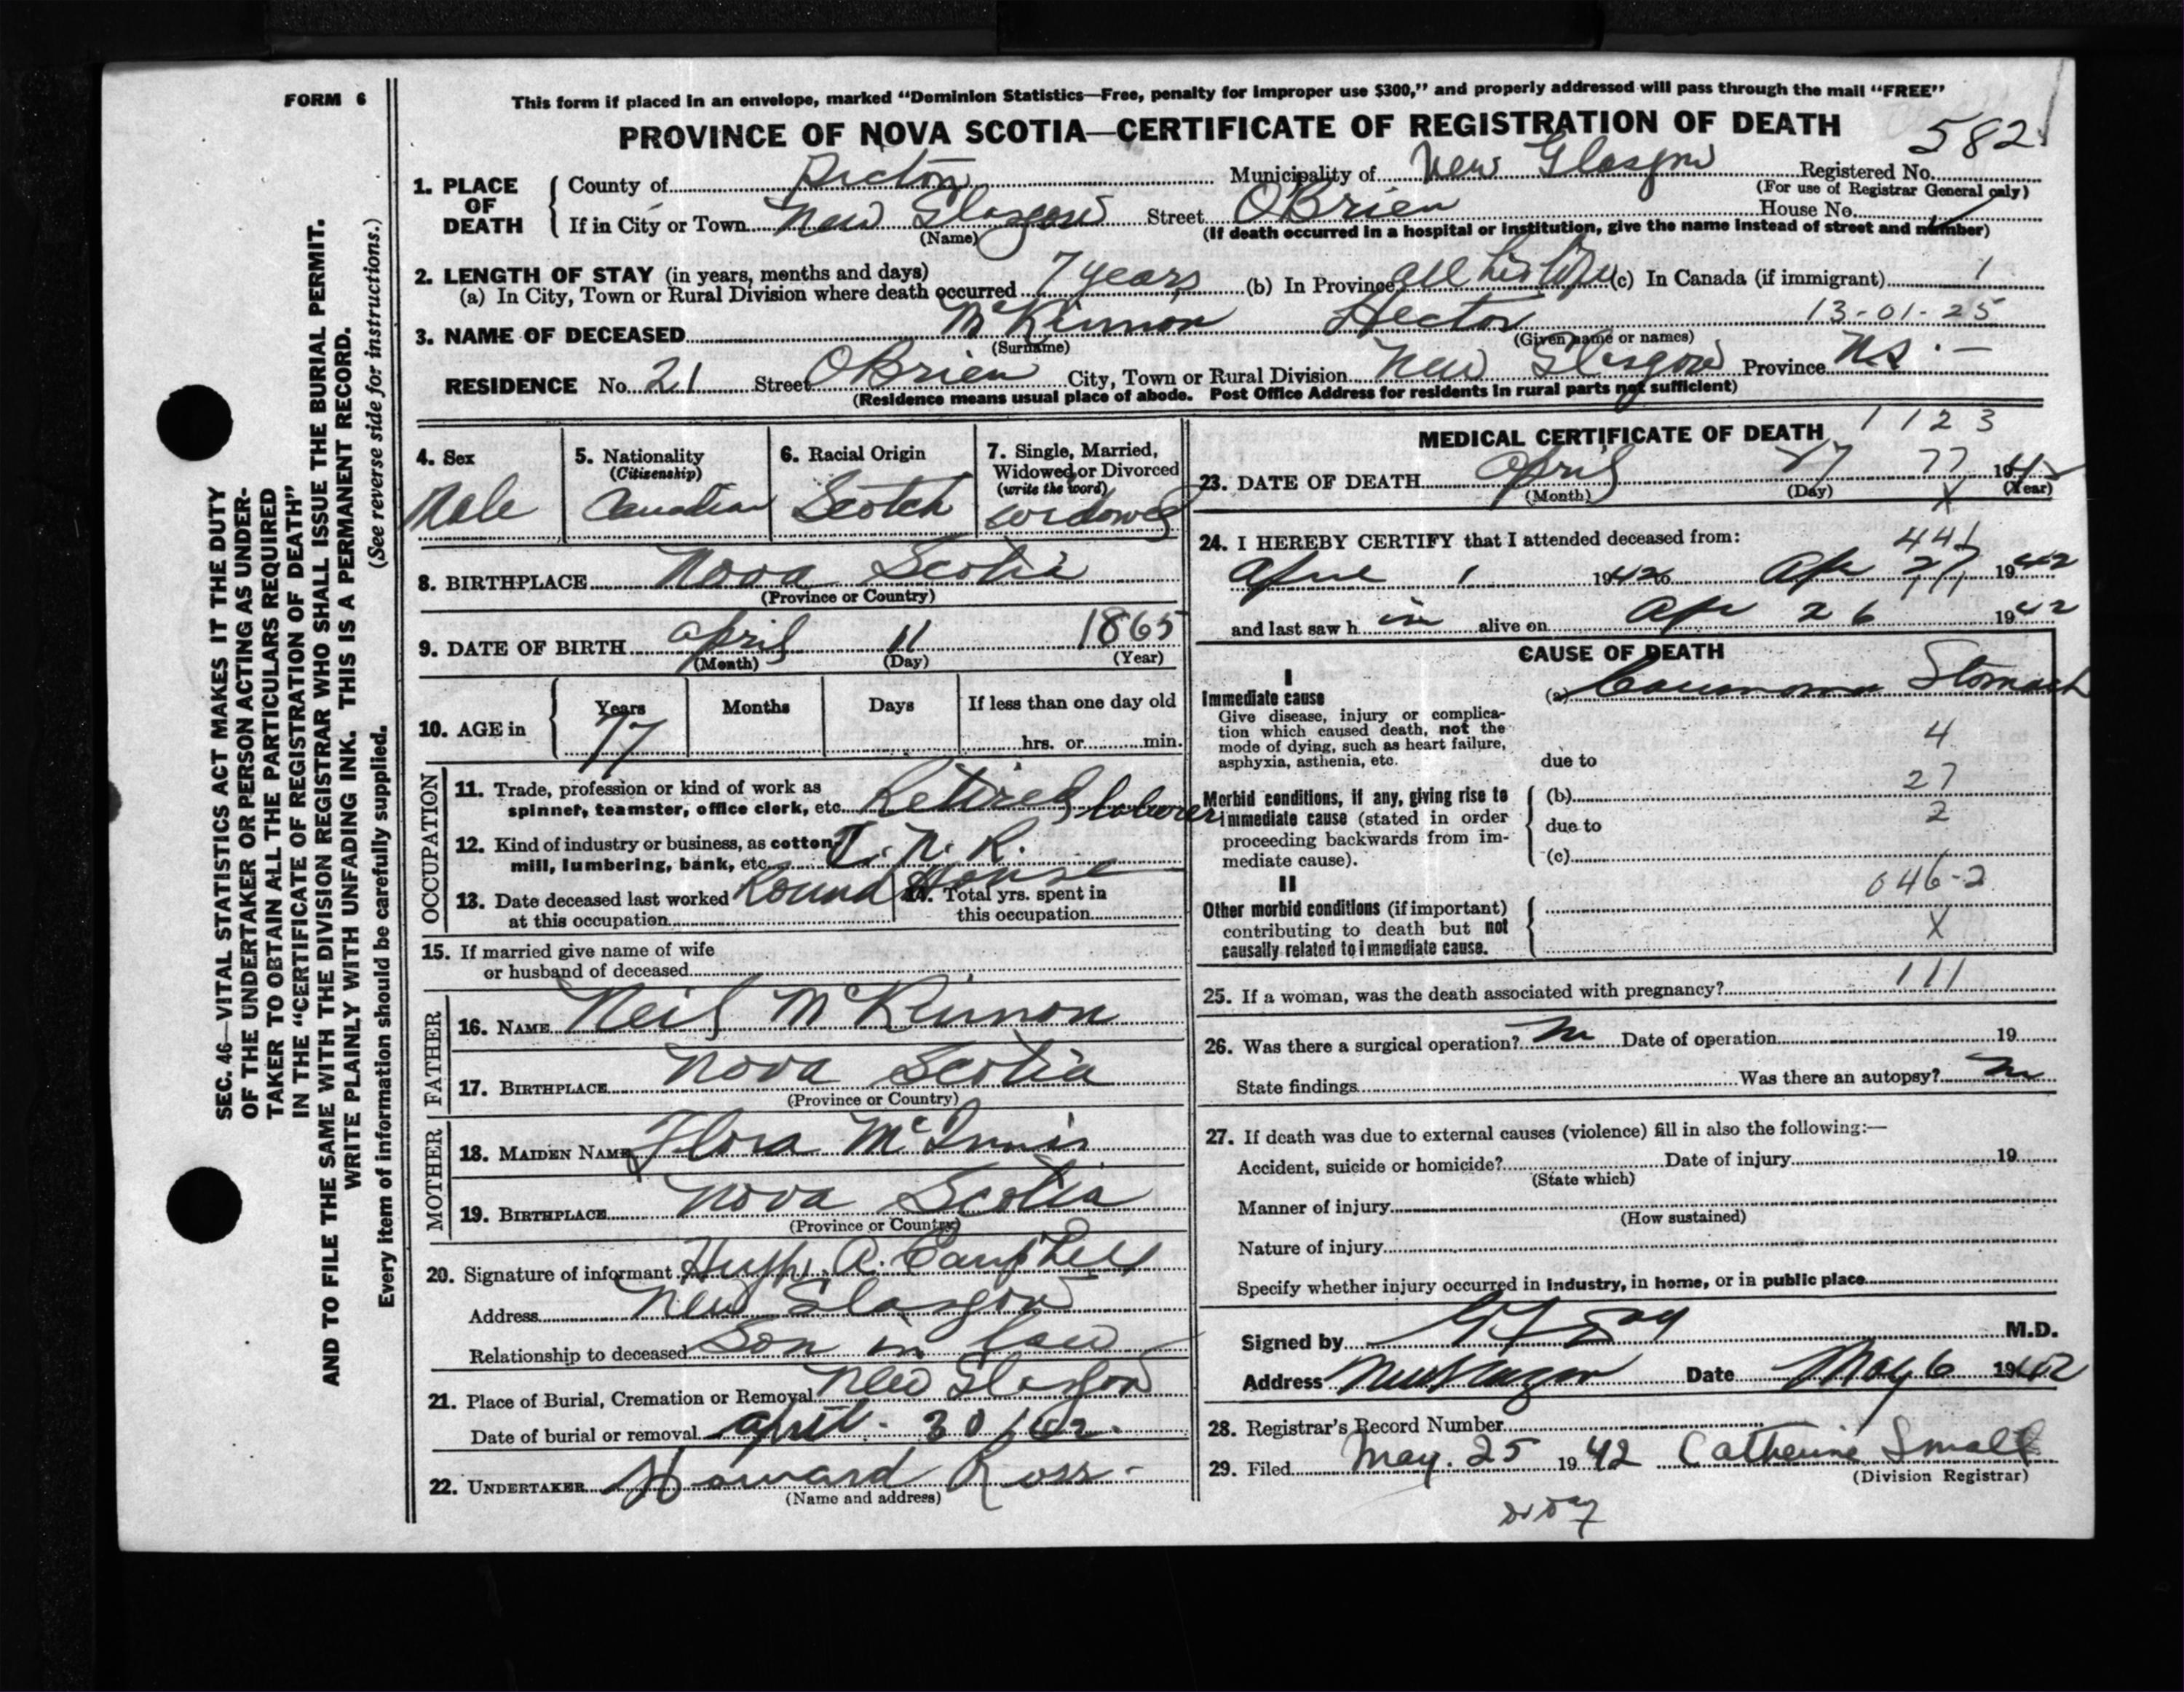 FORM 6
This form if placed in an envelope, marked "Dominion Statistics—Free, penalty for improper use $300," and properly addressed will pass through the mail "FREE"
PROVINCE OF NOVA SCOTIA—CERTIFICATE OF REGISTRATION OF DEATH
582
1. PLACE OF DEATH County of Pictou Municipality of New Glasgow Registered No.
(For use of Registrar General only)
If in City or Town New Glasgow Street OBrien House No.
(Name) (If death occurred in a hospital or institution, give the name instead of street and number)
2. LENGTH OF STAY (in years, months and days)
(a) In City, Town or Rural Division where death occurred 7 years (b) In Province all his life (c) In Canada (if immigrant) 1
3. NAME OF DECEASED McKinnon Hector 13-01-25
(Surname) (Given name or names)
RESIDENCE No. 21 Street OBrien City, Town or Rural Division New Glasgow Province N.S.
(Residence means usual place of abode. Post Office Address for residents in rural parts not sufficient)
4. Sex Male
5. Nationality (Citizenship) Canadian
6. Racial Origin Scotch
7. Single, Married, Widowed or Divorced (write the word) widowed
8. BIRTHPLACE Nova Scotia
(Province or Country)
9. DATE OF BIRTH April 11 1865
(Month) (Day) (Year)
10. AGE in Years Months Days If less than one day old
77 hrs. or min.
OCCUPATION
11. Trade, profession or kind of work as
spinner, teamster, office clerk, etc. Retired laborer
12. Kind of industry or business, as cotton
mill, lumbering, bank, etc. C.N.R.
Round House
13. Date deceased last worked
at this occupation
14. Total yrs. spent in
this occupation
15. If married give name of wife
or husband of deceased
FATHER
16. NAME Neil McKinnon
17. BIRTHPLACE Nova Scotia
(Province or Country)
MOTHER
18. MAIDEN NAME Flora McInnis
19. BIRTHPLACE Nova Scotia
(Province or Country)
20. Signature of informant Hugh A. Campbell
Address New Glasgow
Relationship to deceased Son in law
21. Place of Burial, Cremation or Removal New Glasgow
Date of burial or removal April. 30/42.
22. UNDERTAKER Howard Ross
(Name and address)
MEDICAL CERTIFICATE OF DEATH 1123
23. DATE OF DEATH April 27 77 1942
(Month) (Day) (Year)
X
24. I HEREBY CERTIFY that I attended deceased from: 441
April 1 1942 to Ap 27 1942
111
and last saw h im alive on Ap 26 1942
CAUSE OF DEATH
I
Immediate cause (a) Carcinoma Stomach
Give disease, injury or complication which caused death, not the
mode of dying, such as heart failure,
asphyxia, asthenia, etc. due to
4
Morbid conditions, if any, giving rise to (b) 27
immediate cause (stated in order due to 2
proceeding backwards from immediate cause). (c)
II 046-2
Other morbid conditions (if important)
contributing to death but not X
causally related to immediate cause.
25. If a woman, was the death associated with pregnancy? 111
26. Was there a surgical operation? no Date of operation 19
State findings Was there an autopsy? no
27. If death was due to external causes (violence) fill in also the following:—
Accident, suicide or homicide? Date of injury 19
(State which)
Manner of injury
(How sustained)
Nature of injury
Specify whether injury occurred in industry, in home, or in public place
Signed by M.D.
Address New Glasgow Date May 6 1942
28. Registrar's Record Number
29. Filed May. 25 1942 Catherine Small
(Division Registrar)
SEC. 46—VITAL STATISTICS ACT MAKES IT THE DUTY
OF THE UNDERTAKER OR PERSON ACTING AS UNDER-
TAKER TO OBTAIN ALL THE PARTICULARS REQUIRED
IN THE "CERTIFICATE OF REGISTRATION OF DEATH"
AND TO FILE THE SAME WITH THE DIVISION REGISTRAR WHO SHALL ISSUE THE BURIAL PERMIT.
WRITE PLAINLY WITH UNFADING INK. THIS IS A PERMANENT RECORD.
(See reverse side for instructions.)
Every item of information should be carefully supplied.